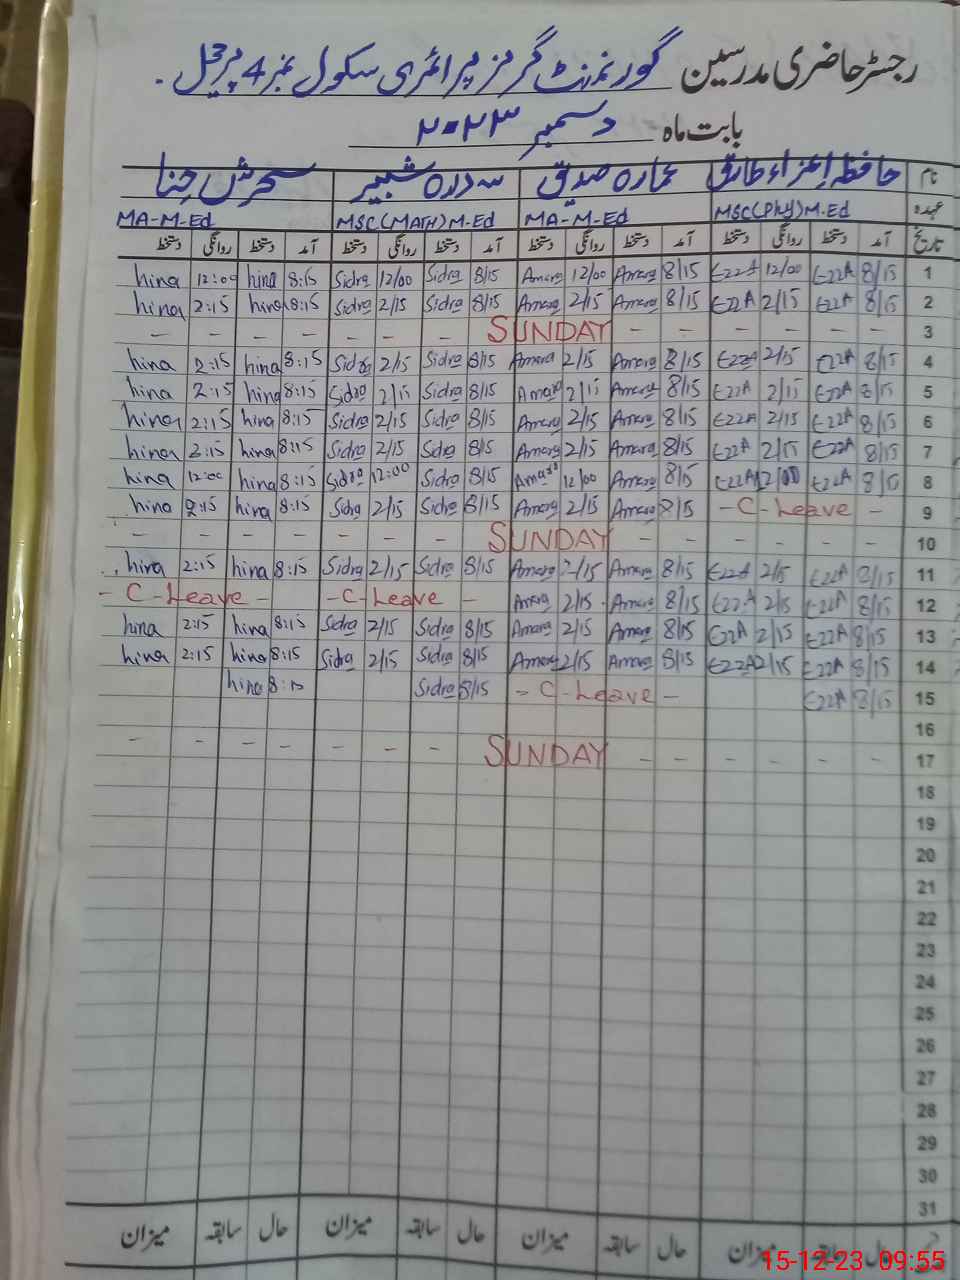 رجسٹر حاضری مدرسین گورنمنٹ گرلز پرائمری سکول نمبر 4
بابت ماہ دسمبر ۲۰۲۳
نام حافظہ طارق عمارہ صدیق سدرہ شبیر سحرش حنا
عہدہ MSC(Phy)M.Ed MA-M-Ed MSC(MATH)M.Ed MA-M-Ed
تاریخ آمد دستخط روانگی دستخط آمد دستخط روانگی دستخط آمد دستخط روانگی دستخط آمد دستخط روانگی دستخط
1 8/15 E22A 12/00 E22A 8/15 Amara 12/00 Amara 8/15 Sidra 12/00 Sidra 8:15 hina 12:00 hina
2 8/15 E22A 2/15 E22A 8/15 Amara 2/15 Amara 8/15 Sidra 2/15 Sidra 8:15 hina 2:15 hina
3 - - - - SUNDAY - - - - - -
4 8/15 E22A 2/15 E22A 8/15 Amara 2/15 Amara 8/15 Sidra 2/15 Sidra 8:15 hina 2:15 hina
5 8/15 E22A 2/15 E22A 8/15 Amara 2/15 Amara 8/15 Sidra 2/15 Sidra 8:15 hina 2:15 hina
6 8/15 E22A 2/15 E22A 8/15 Amara 2/15 Amara 8/15 Sidra 2/15 Sidra 8:15 hina 2:15 hina
7 8/15 E22A 2/15 E22A 8/15 Amara 2/15 Amara 8/15 Sidra 2/15 Sidra 8:15 hina 2:15 hina
8 8/15 E22A 12/00 E22A 8/15 Amara 12/00 Amara 8/15 Sidra 12:00 Sidra 8:15 hina 12:00 hina
9 - C - Leave - 8/15 Amara 2/15 Amara 8/15 Sidra 2/15 Sidra 8:15 hina 2:15 hina
10 - - - - - - SUNDAY - - - - - -
11 8/15 E22A 2/15 E22A 8/15 Amara 2/15 Amara 8/15 Sidra 2/15 Sidra 8:15 hina 2:15 hina
12 8/15 E22A 2/15 E22A 8/15 Amara 2/15 Amara - C - Leave - - C - Leave -
13 8/15 E22A 2/15 E22A 8/15 Amara 2/15 Amara 8/15 Sidra 2/15 Sidra 8:15 hina 2:15 hina
14 8/15 E22A 2/15 E22A 8/15 Amara 2/15 Amara 8/15 Sidra 2/15 Sidra 8:15 hina 2:15 hina
15 8/15 E22A - C - Leave - 8/15 Sidra 8:15 hina
16
17 - - - - - - SUNDAY - - - - - -
18
19
20
21
22
23
24
25
26
27
28
29
30
31
حال سابقہ میزان حال سابقہ میزان حال سابقہ میزان حال سابقہ میزان
15-12-23 09:55